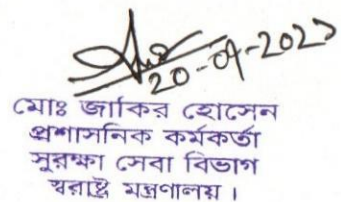 20-07-2023
মোঃ জাকির হোসেন
প্রশাসনিক কর্মকর্তা
সুরক্ষা সেবা বিভাগ
স্বরাষ্ট্র মন্ত্রণালয় ।